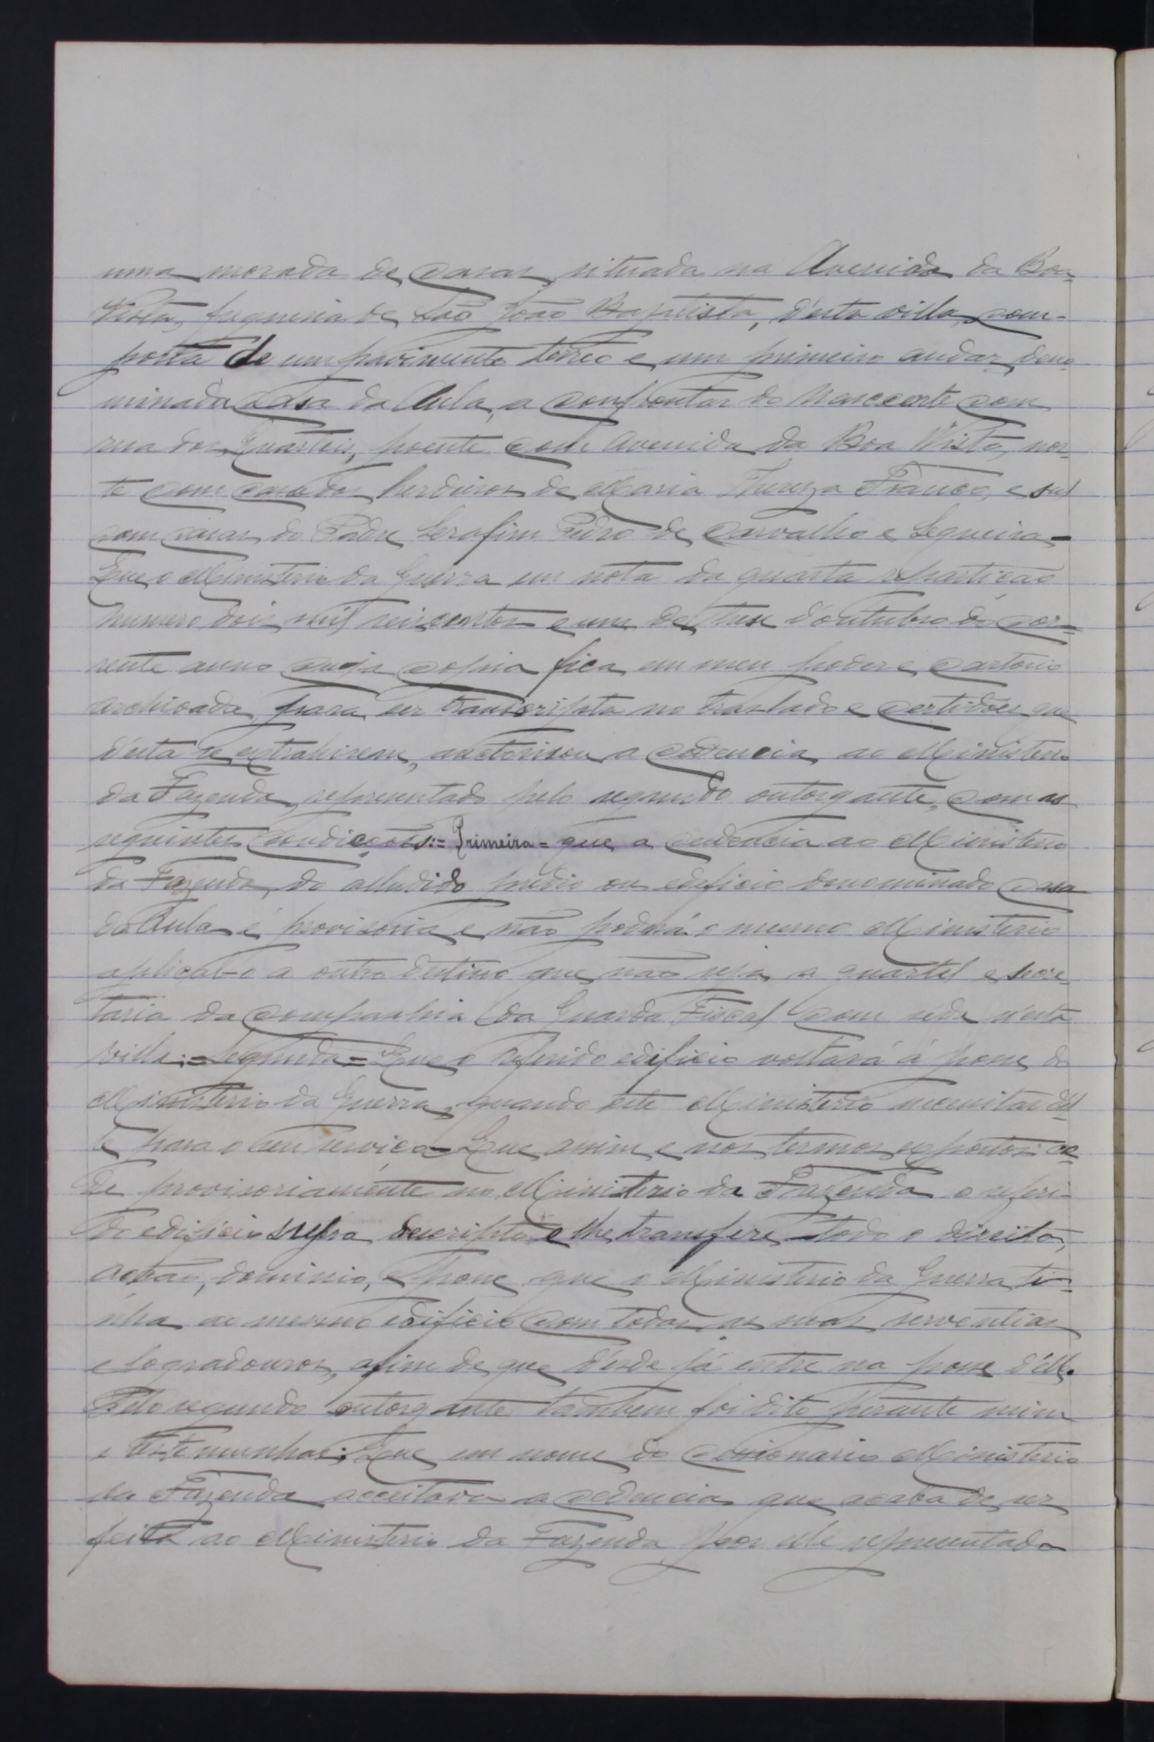 uma morada de casas, situada na Avenida da Boa
Vista, freguesia de São João Baptista, d'esta villa, com-
posta de um pavimento terreo e um primeiro andar, deno-
minada Casa da Aula, a confrontar do nascente com
rua dos Quarteis, poente com Avenida da Boa Vista, nor-
te com casa dos herdeiros de Maria Thereza Franco, e sul
com casas do Padre Serafim Pedro de Carvalho e Sequeira =
Que o Ministerio da Guerra em nota da quarta repartição
numero dois mil seiscentos e um de treze d'outubro do cor-
rente anno cuja copia fica em meu poder e cartorio
archivada para ser transcripta no traslado e certidões que
d'esta se extrahirem, auctorisou a cedencia ao Ministerio
da Fazenda, representado pelo segundo outorgante, com as
seguintes condicções:= Primeira = que a cedencia ao Ministerio
da Fazenda, do alludido predio ou edificio denominado Casa
da Aula é provisoria e não poderá o mesmo Ministerio
applical-o a outro destino que não seja a quartel e secre-
taria da companhia da Guarda Fiscal com sede n'esta
villa; = Segunda = Que o referido edificio voltará á posse do
Ministerio da Guerra, quando este Ministerio necessitar d'el-
le para o seu serviço = Que assim e nos termos expostos ce-
de provisoriamente ao Ministerio da Fazenda o referi-
do edificio supra descripto e lhe transfere todo o direito,
acção, dominio, e posse que o Ministerio da Guerra ti-
nha ao mesmo edificio com todas as suas serventias
e logradouros, afim de que desde já entre na posse d'elle.
Pelo segundo outorgante tambem foi dito perante mim
e testemunhas: Que em nome do cessionario Ministerio
da Fazenda acceitava a cedencia que acaba de ser
feita ao Ministerio da Fazenda por elle representado